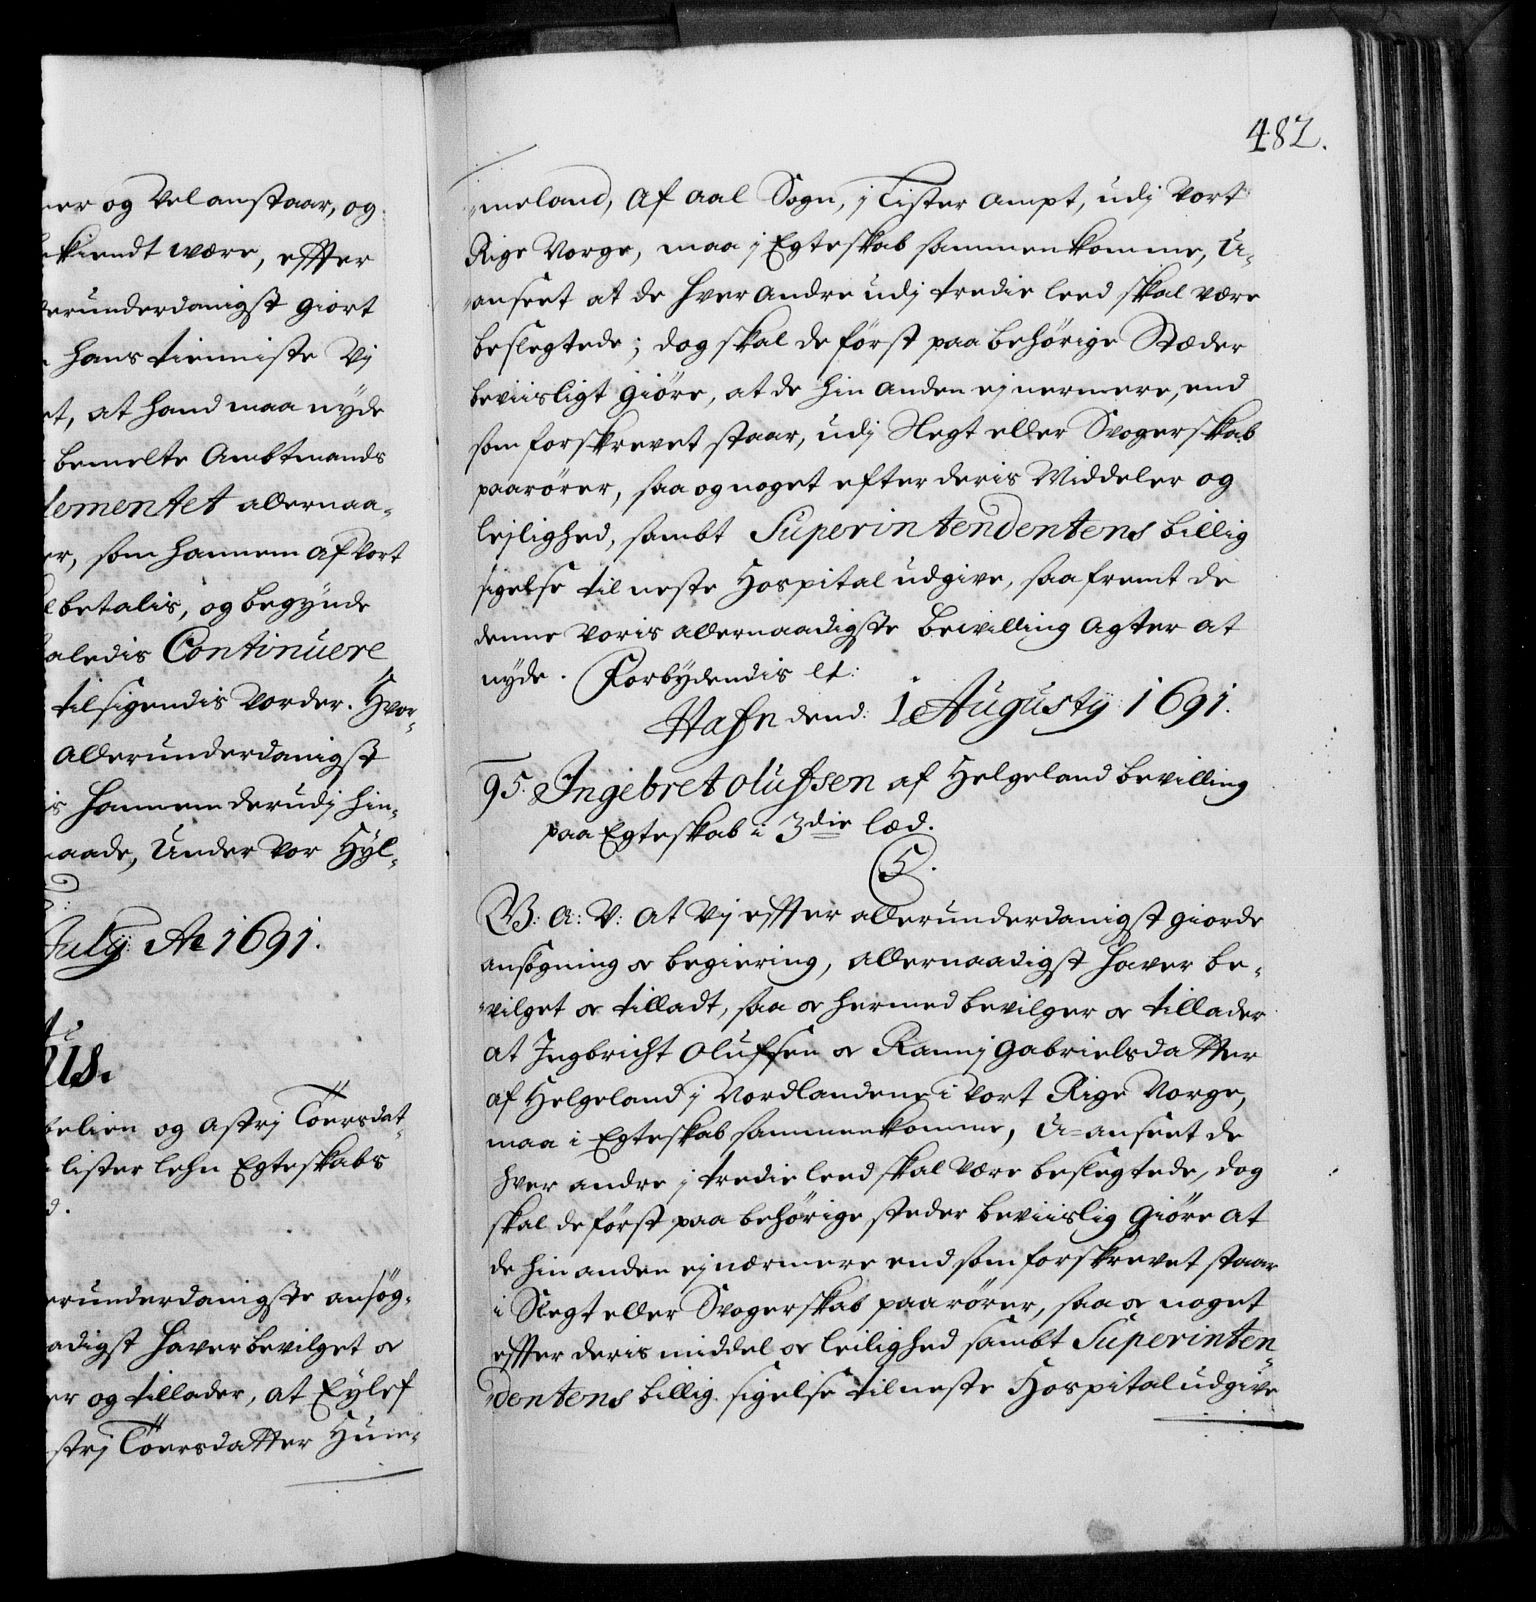 482.
er og Vel anstaar, og
kiendt wære, effter
erunderdanigst giort
hans tienniste Vj
et, at hand maa nyde
bemelte Ambtmands
lementet allernaa-
er, som hannem af Vort
betalis, og begynde
aledis Continuere
tilsigendis Vorder. Hvor-
allerunderdanigst
is hannem derudj hin-
naade, Under Vor Hyl-
July Ao 1691.
us.
belien og Astrj Toersdat-
lister lehn Egteskabs
d.
erunderdanigste ansøg-
adigst haver bevilget og
er og tillader, at Eylef
strj Toersdatter Hum-
meland, af Aal Sogn, j Lister Ampt, udj Vort
Rige Norge, maa j Egteskab sammenkomme, U-
anseet at de hver andre udj tredie leed skal være
beslegtede; dog skal de först paa behörige Stæder
beviisligt giöre, at de hin anden ej nermere, end
som forskrevet staar, udj Slegt eller Svogerskab
paarörer, saa og noget efter deris Middeler og
lejlighed, sambt Superintendentens billig
sigelse til neste Hospital udgive, saafremt de
denne Voris allernaadigste bevilling agter at
nyde. Forbydendis et:
Hafn dend: 1 Augusty 1691.
95. Ingebret olufsen af Helgeland bevilling
paa Egteskab i 3die læd.
C 5.
G: A: V: at Vj effter allerunderdanigst giorde
ansögning og begiering, allernaadigst haver be-
vilget og tilladt, saa og hermed bevilger og tillader
at Ingbricht Olufsen og Rannj Gabrielsdatter
af Helgeland j Nordlandene i Vort Rige Norge,
maa i Egteskab sammenkomme, U-anseet de
hver andre j tredie leed skal være beslegtede, dog
skal de först paa behörige steder beviislig giöre at
de hin anden ej nærmere end som forskrevet staar
i Slegt eller Svogerskab paarörer, saa og noget
effter deris middel og leilighed sambt Superinten
dentens billig sigelse til neste Hospital udgive